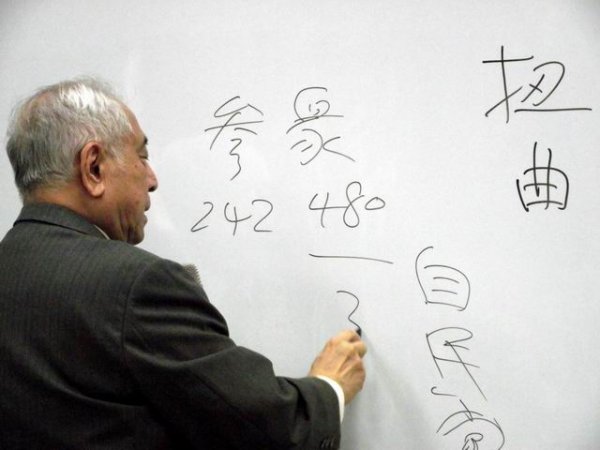 扭曲
参眾
242 480
3
自民